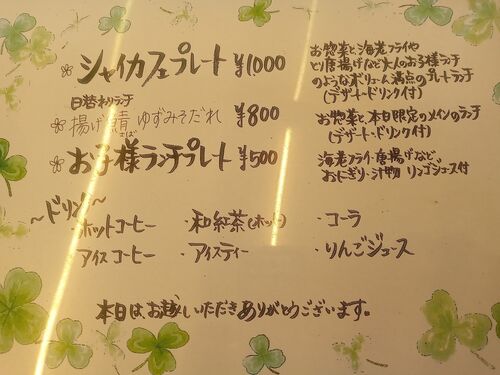 シャイカフェプレート ¥1000
お惣菜と、海老フライや
とり唐揚げなど大人のお子様ランチ
のようなボリューム満点のプレートランチ
(デザート・ドリンク付)
日替わりランチ
揚げ鯖 ゆずみそだれ ¥800
さば
お惣菜と、本日限定のメインのランチ
(デザート・ドリンク付)
お子様ランチプレート ¥500
海老フライ・唐揚げなど
おにぎり・汁物 リンゴジュース付
〜ドリンク〜
・ホットコーヒー ・和紅茶(ホット) ・コーラ
・アイスコーヒー ・アイスティー ・りんごジュース
本日は、お越しいただきありがとうございます。